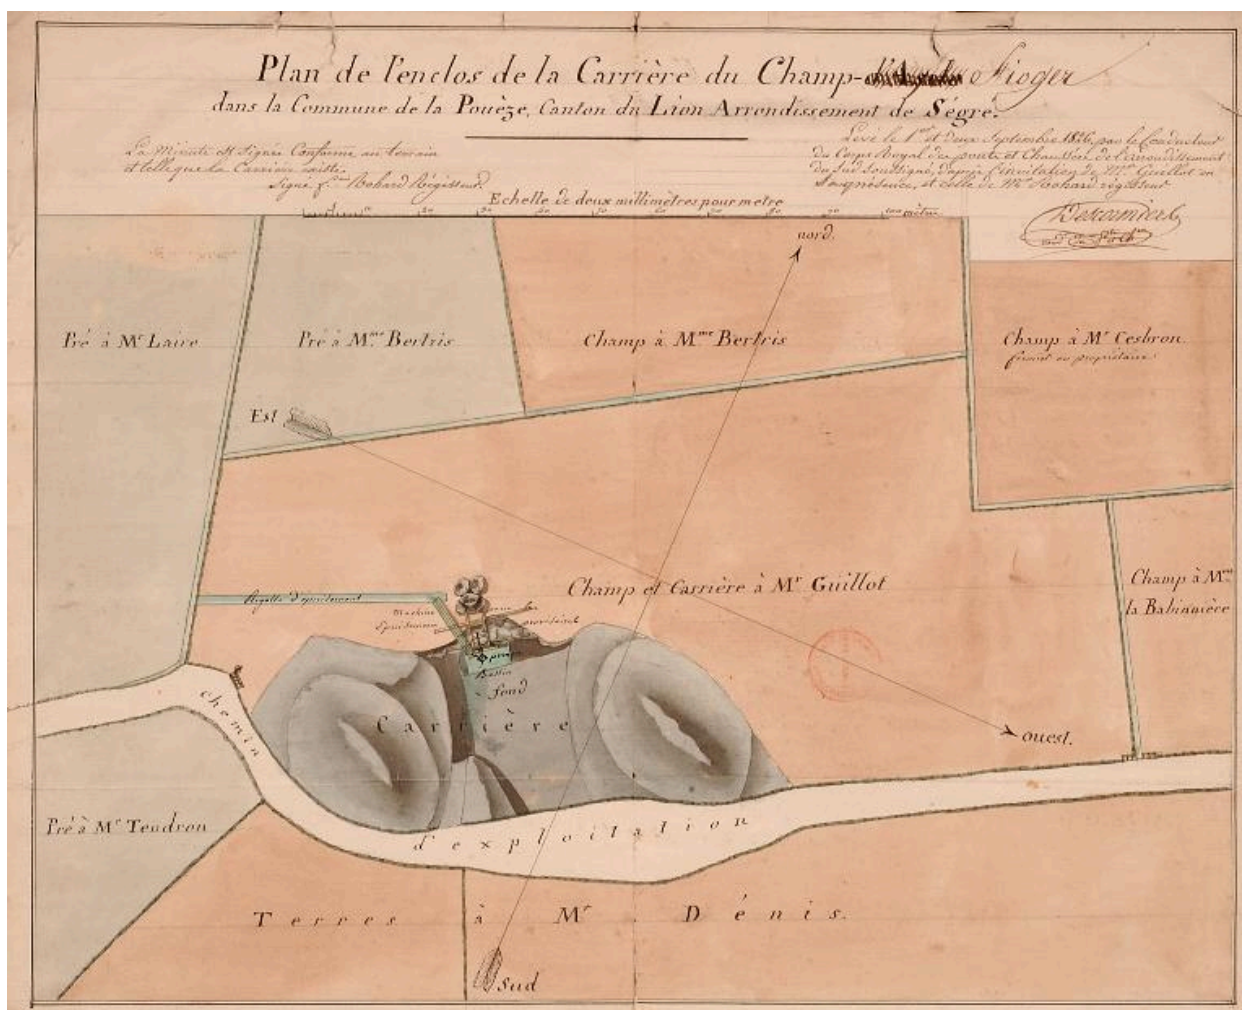 Plan de l'enclos de la Carrière du Champ- Fioger
dans la Commune de la Pouëze, Canton du Lion Arrondissement de Ségré.
La Minute est signée Conforme au terrain
et telle que la Carrière existe.
Signé Rohard Régisseur.
Levé le 1er et deux Septembre 1826, par le Conducteur
du Corps Royal des ponts et Chaussées de l'arrondissement
du Sud soussigné, d'après l'invitation de Mr Guillot en
sa présence, et celle de Mr Rohard régisseur
Echelle de deux millimètres pour mètre
nord.
Pré à Mr Laire
Pré à Mme Bertris
Champ à Mme Bertris
Champ à Mr Cesbron.
Est
Champ et Carrière à Mr Guillot
Champ à Mme
la Babinnière
Rigolle d'épuisement
Machine
Bassin
fond
Carrière
chemin
ouest.
Pré à Mr Tendron
d'exploitation
Terres à Mr Dénis.
Sud